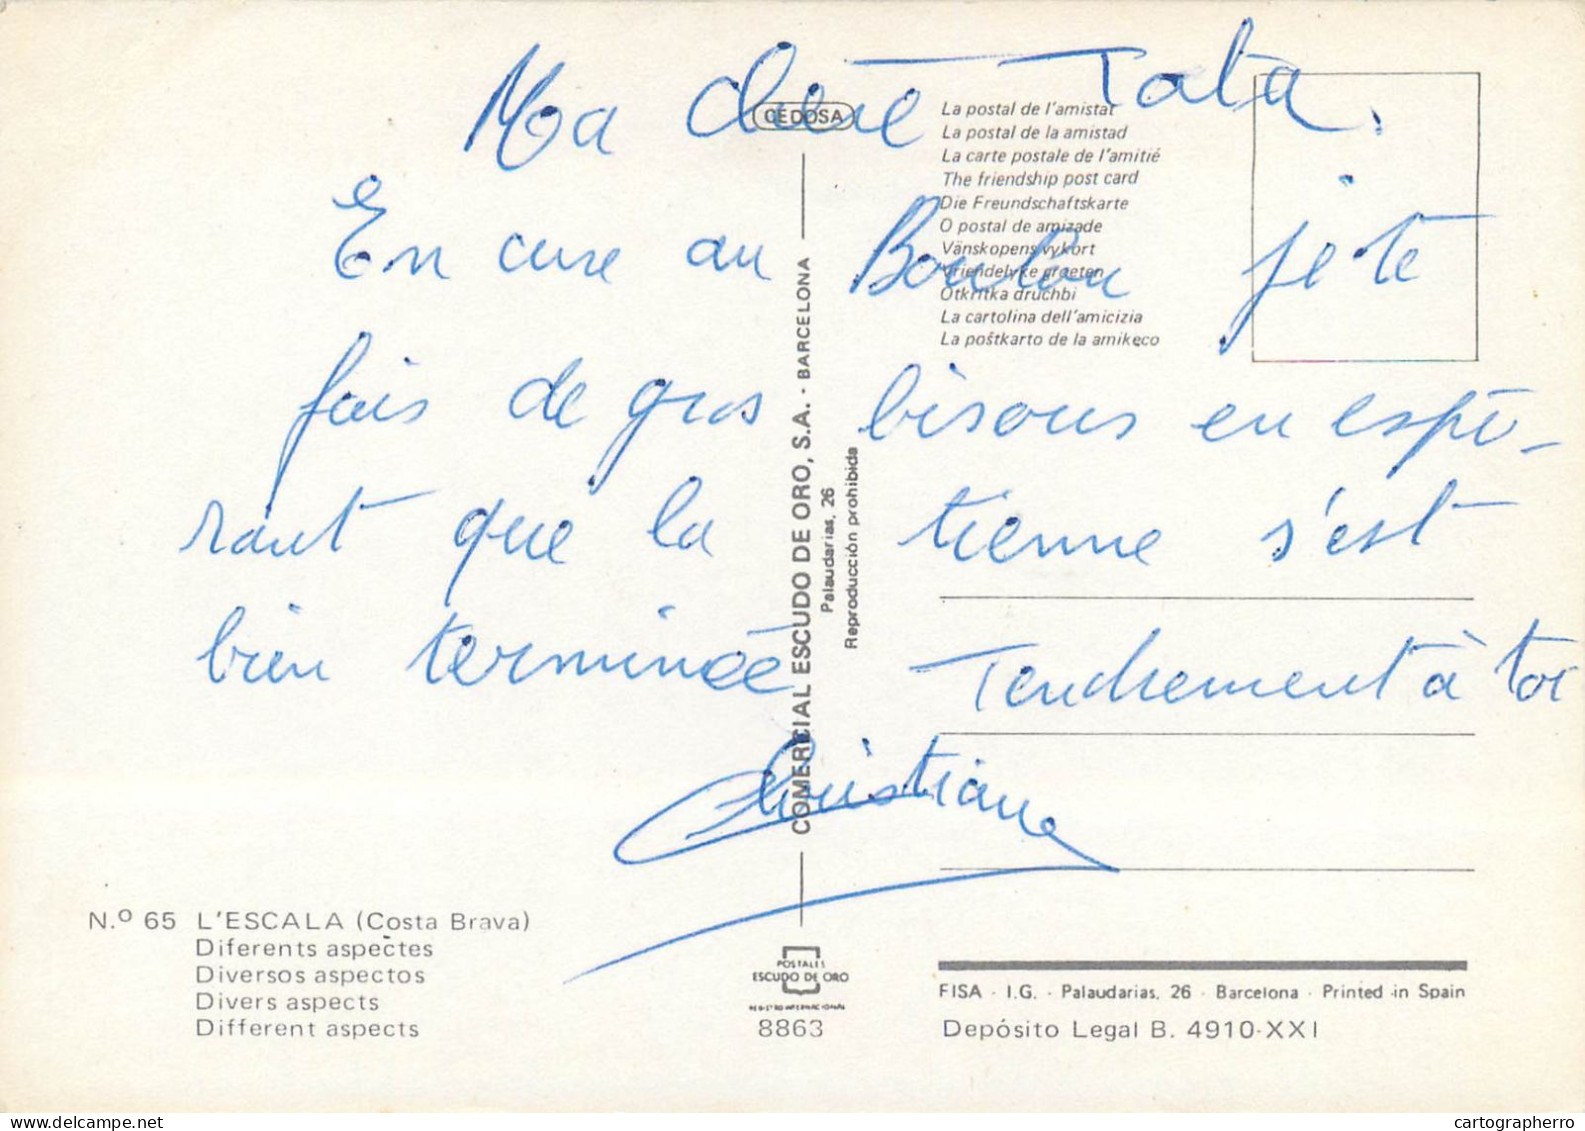 Ma chère Tata,
En cure au Boulou je te
fais de gros bisous en espé-
rant que la tienne s'est
bien terminée Tendrement à toi
Christiane
CEDOSA
La postal de l'amistat
La postal de la amistad
La carte postale de l'amitié
The friendship post card
Die Freundschaftskarte
O postal de amizade
Vänskopens vykort
Vriendelyke groeten
Otkritka druchbi
La cartolina dell'amicizia
La poŝtkarto de la amikeco
COMERCIAL ESCUDO DE ORO, S.A. - BARCELONA
Palaudarias, 26
Reproducción prohibida
N.º 65 L'ESCALA (Costa Brava)
Diferents aspectes
Diversos aspectos
Divers aspects
Different aspects
POSTALES
ESCUDO DE ORO
REGISTRO INTERNACIONAL
8863
FISA - I.G. - Palaudarias, 26 - Barcelona - Printed in Spain
Depósito Legal B. 4910-XXI
cartographerro